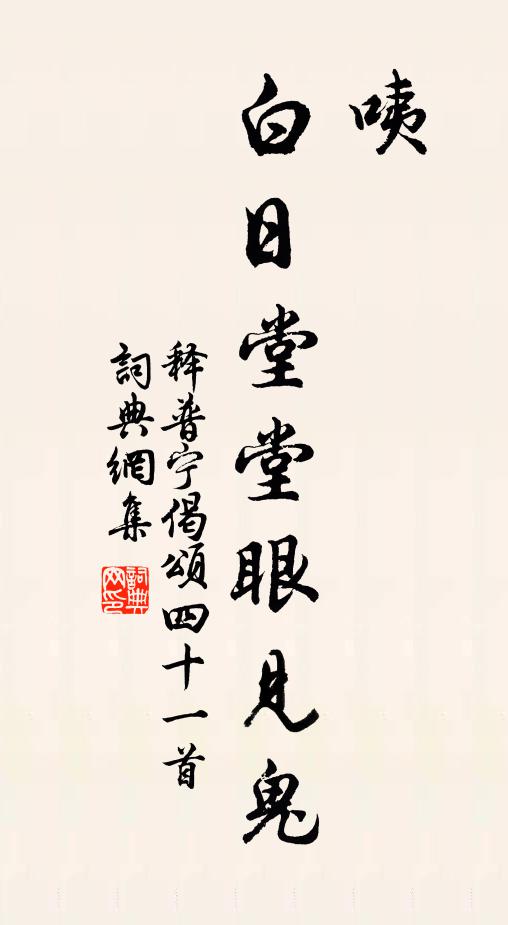 咦
白日堂堂眼見鬼
释普宁偈頌四十一首
詞典網集
詞典
网印